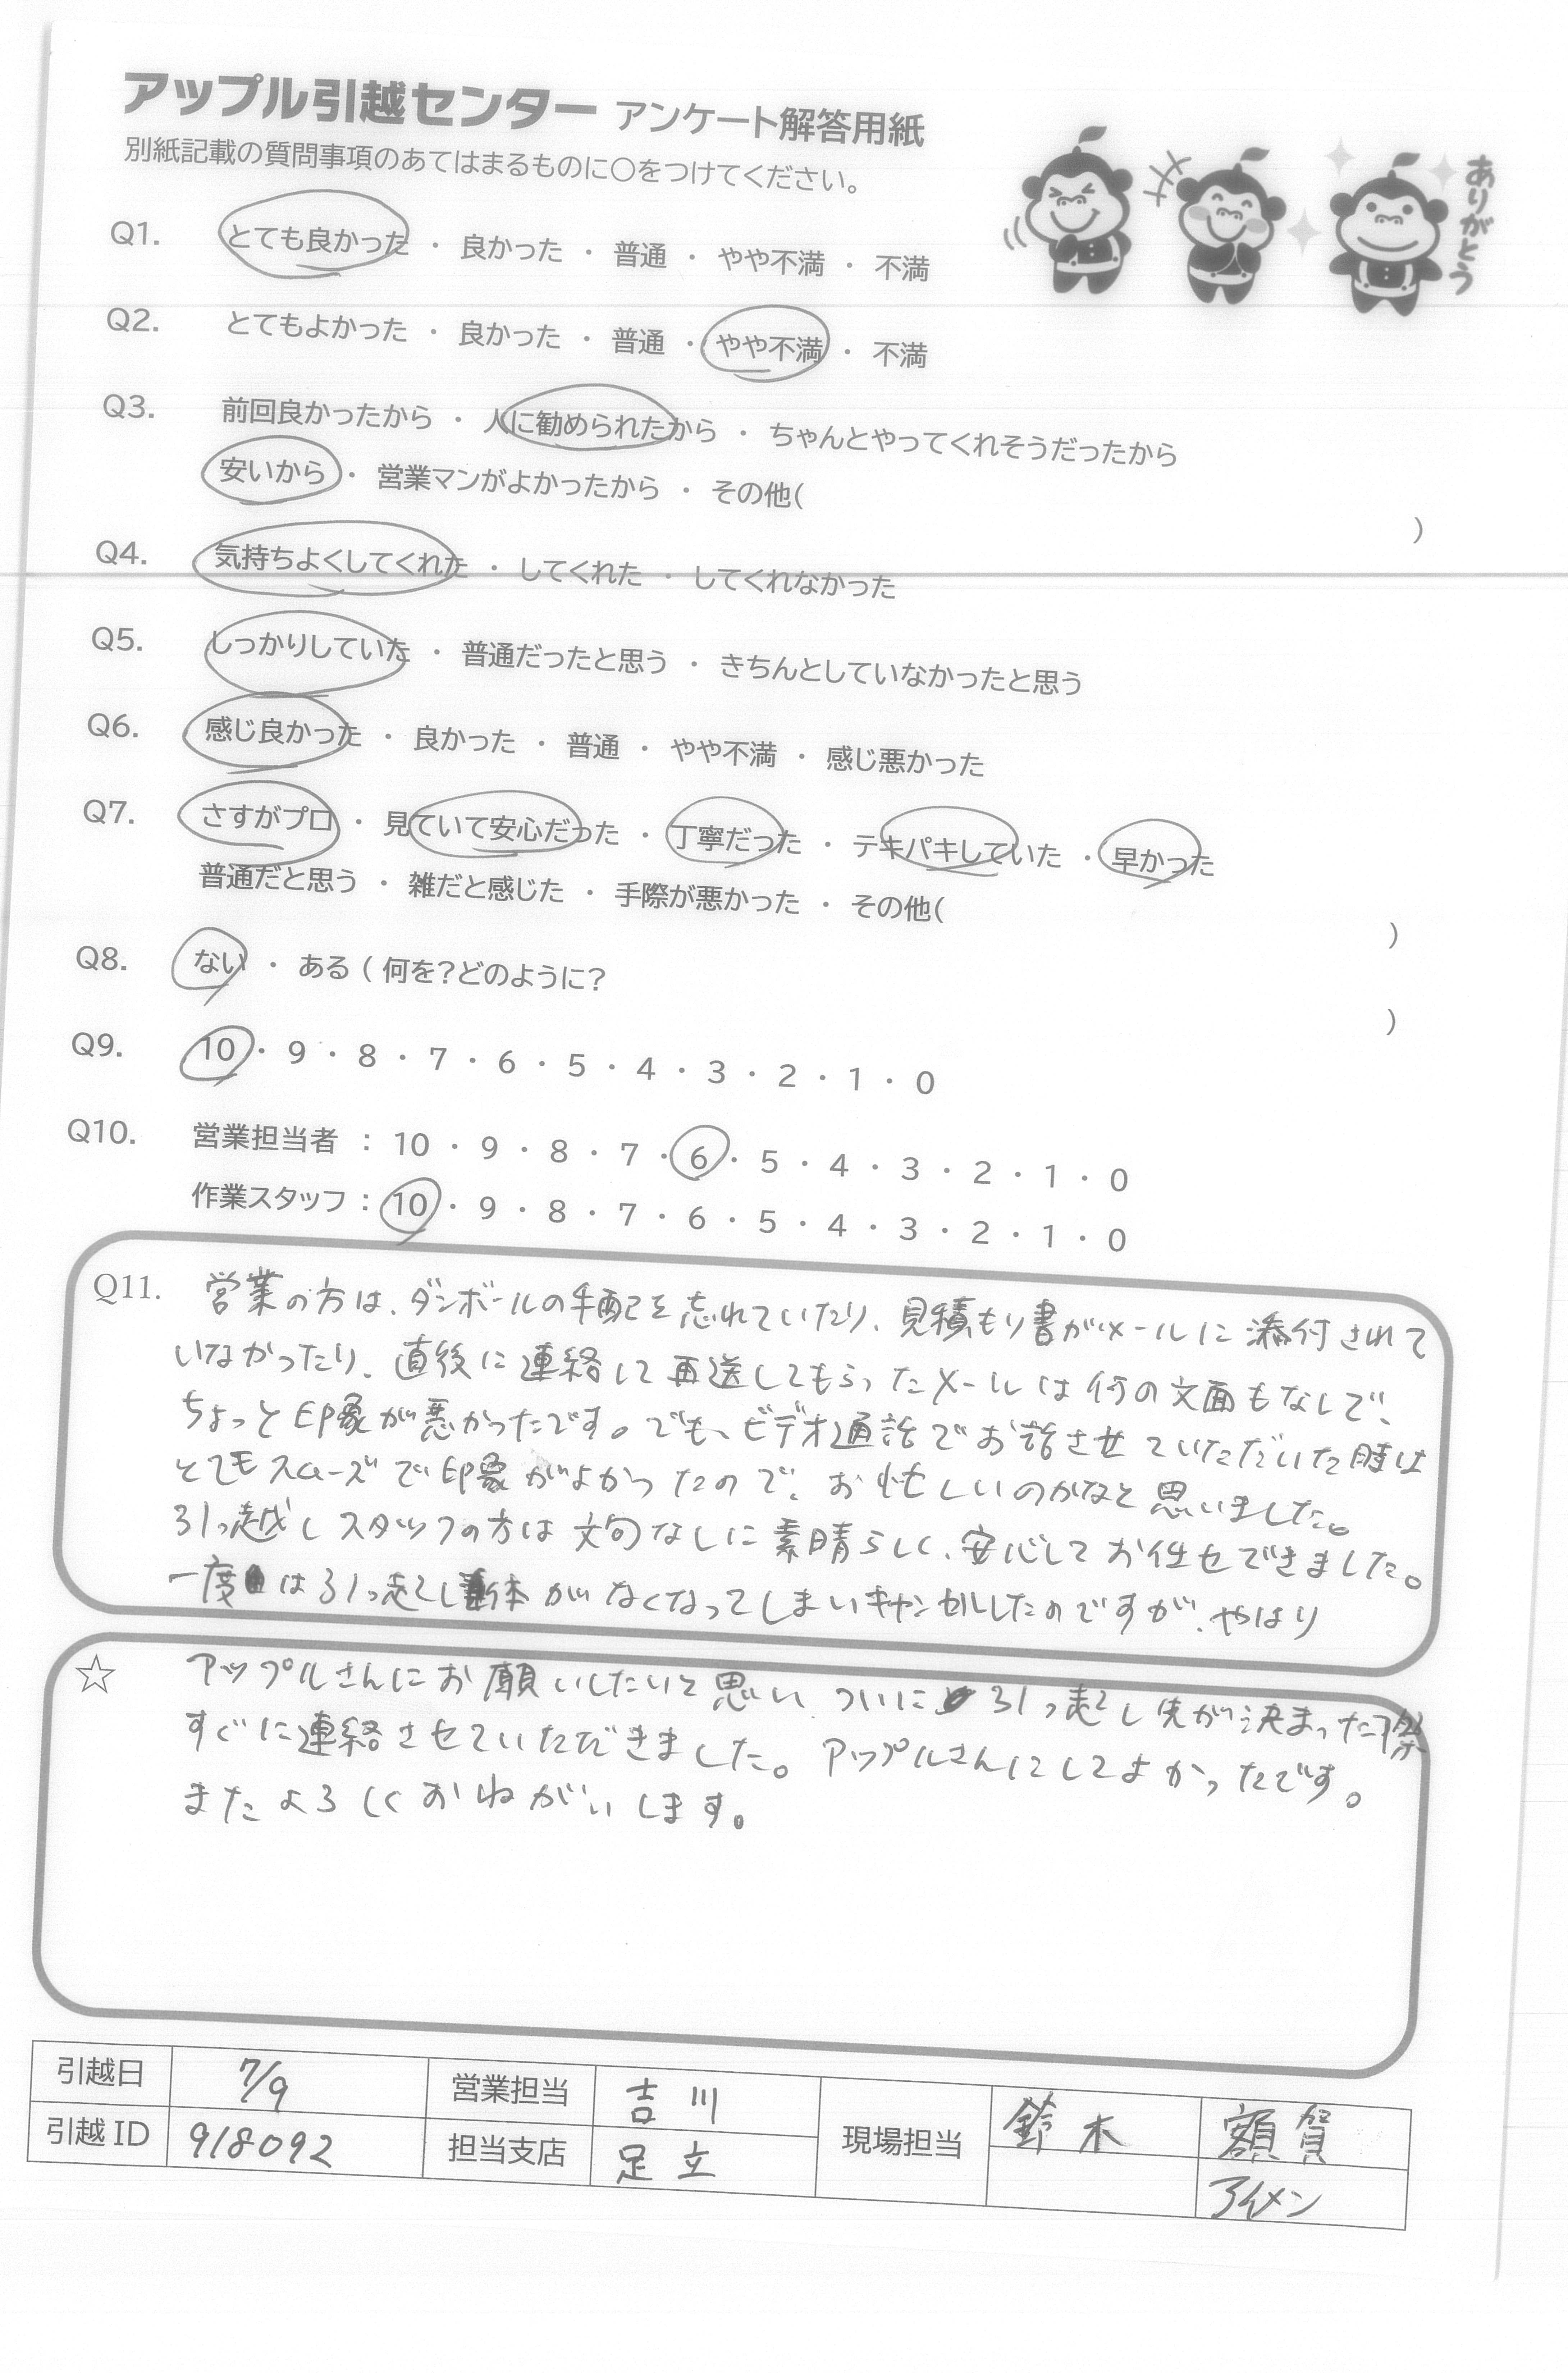 アップル引越センター アンケート解答用紙
別紙記載の質問事項のあてはまるものに○をつけてください。
ありがとう
Q1. とても良かった ・ 良かった ・ 普通 ・ やや不満 ・ 不満
Q2. とてもよかった ・ 良かった ・ 普通 ・ やや不満 ・ 不満
Q3. 前回良かったから ・ 人に勧められたから ・ ちゃんとやってくれそうだったから
安いから ・ 営業マンがよかったから ・ その他( )
Q4. 気持ちよくしてくれた ・ してくれた ・ してくれなかった
Q5. しっかりしていた ・ 普通だったと思う ・ きちんとしていなかったと思う
Q6. 感じ良かった ・ 良かった ・ 普通 ・ やや不満 ・ 感じ悪かった
Q7. さすがプロ ・ 見ていて安心だった ・ 丁寧だった ・ テキパキしていた ・ 早かった
普通だと思う ・ 雑だと感じた ・ 手際が悪かった ・ その他( )
Q8. ない ・ ある ( 何を?どのように? )
Q9. 10 ・ 9 ・ 8 ・ 7 ・ 6 ・ 5 ・ 4 ・ 3 ・ 2 ・ 1 ・ 0
Q10. 営業担当者 : 10 ・ 9 ・ 8 ・ 7 ・ 6 ・ 5 ・ 4 ・ 3 ・ 2 ・ 1 ・ 0
作業スタッフ : 10 ・ 9 ・ 8 ・ 7 ・ 6 ・ 5 ・ 4 ・ 3 ・ 2 ・ 1 ・ 0
Q11. 営業の方は、ダンボールの手配を忘れていたり、見積もり書がメールに添付されて
いなかったり、直後に連絡して再送してもらったメールは何の文面もなしで、
ちょっと印象が悪かったです。でも、ビデオ通話でお話させていただいた時は
とてもスムーズで印象がよかったので、お忙しいのかなと思いました。
引っ越しスタッフの方は文句なしに素晴らしく、安心してお任せできました。
一度は引っ越し自体がなくなってしまいキャンセルしたのですが、やはり
☆ アップルさんにお願いしたいと思い、ついに引っ越し先が決まった際
すぐに連絡させていただきました。アップルさんにしてよかったです。
またよろしくおねがいします。
引越日 7/9 営業担当 吉川 現場担当 鈴木 額賀
引越ID 918092 担当支店 足立 アイメン